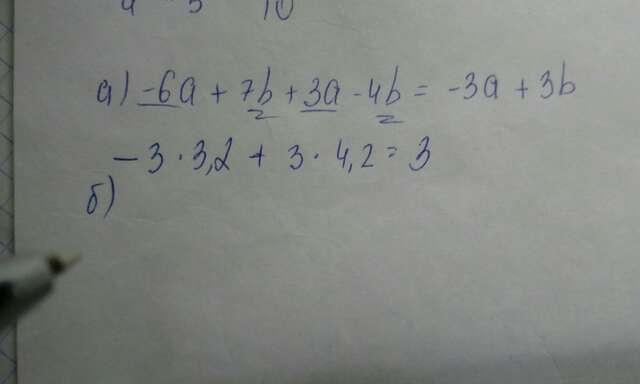 10
а) -6a + 7b + 3a - 4b = -3a + 3b
- 3 · 3,2 + 3 · 4,2 = 3
б)